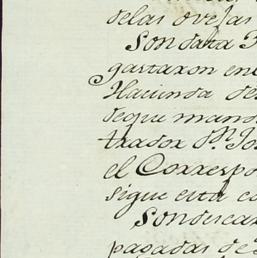 delas ovejas
Son data
gastaron en
Hacienda de
seque mando
trador Dn. Jo
el Correspo
sigue esta c
Son descar
pagadas de